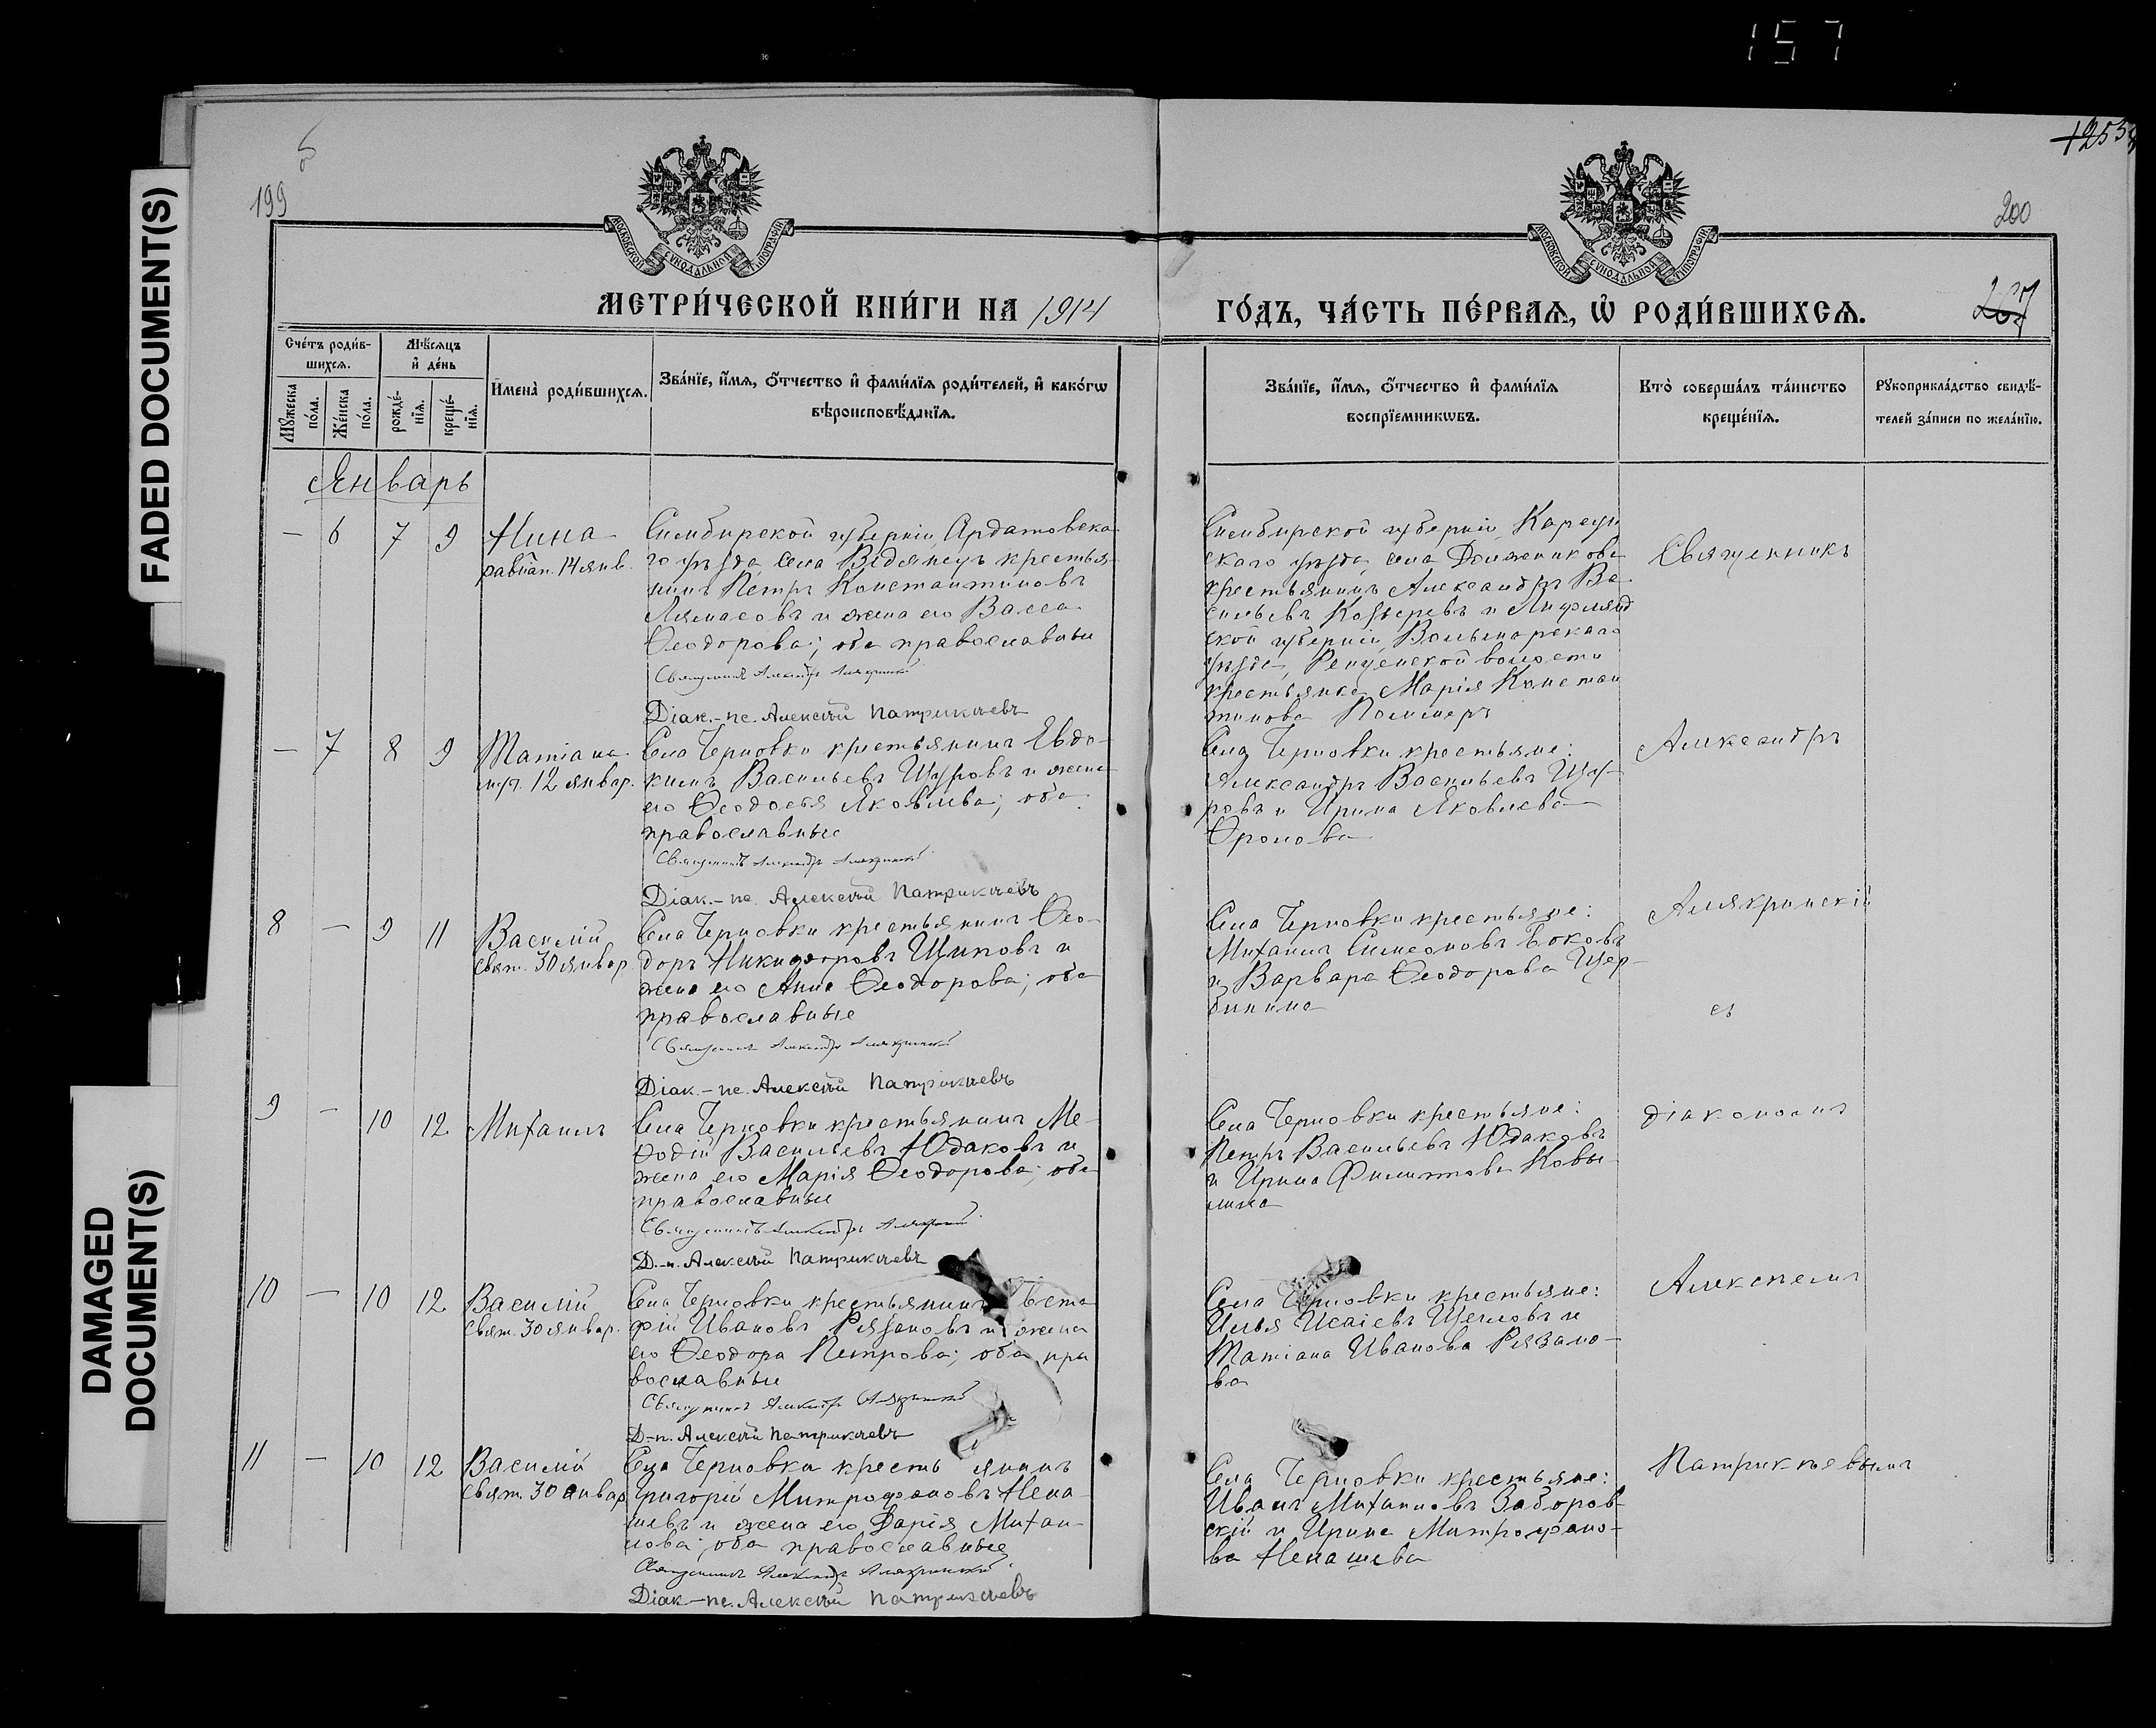 157
FADED DOCUMENT(S)
DAMAGED
DOCUMENT(S)
199
200
267
МОСКОВСКОЙ СѴНОДАЛЬНОЙ ТИПОГРАФІИ
МОСКОВСКОЙ СѴНОДАЛЬНОЙ ТИПОГРАФІИ
МЕТРИ́ЧЕСКОЙ КНИ́ГИ НА 1914
ГО́ДЪ, ЧА́СТЬ ПЕ́РВАЯ, Ѡ҆ РОДИ́ВШИХСЯ.
Сче́тъ роди́в-
шихся.
Мꙋжеска
по́ла.
Же́нска
по́ла.
Мѣ́сяцъ
и҆ де́нь
рожде́-
нїя.
креще́-
нїя.
И҆мена̀ роди́вшихся.
Зва́нїе, и҆́мя, о҆́тчество и҆ фами́лїя роди́телей, и҆ како́гѡ
вѣроисповѣ́данїя.
Зва́нїе, и҆́мя, о҆́тчество и҆ фами́лїя
воспрїе́мникѡвъ.
Кто̀ соверша́лъ та́инство
креще́нїя.
Рꙋкоприкла́дство свидѣ́-
телей за́писи по жела́нїю.
Январь
— 6 7 9 Нина
равноап. 14 янв.
Симбирской губерніи, Ардатовска-
го уѣзда, села Ведянецъ крестья-
нинъ Петръ Константиновъ
и жена его Васса
Ѳеодорова; оба православные
Священникъ Александръ Алякринскій
Діак.-пс. Алексѣй Патрикѣевъ
Симбирской губерніи, Карсун
скаго уѣзда, села
крестьянинъ Александръ Ва-
сильевъ Козыревъ и Лифлянд
ской губерніи, Вольмарскаго
уѣзда, волости
крестьянка Марія Констан
тинова
Священникъ
— 7 8 9 Татіана
муч. 12 январ.
Села Черновки крестьянинъ Евдо-
кимъ Васильевъ Щуровъ и жена
его Ѳеодосія Яковлева; оба
православные
Священникъ Александръ Алякринскій
Діак.-пс. Алексѣй Патрикѣевъ
Села Черновки крестьяне:
Александръ Васильевъ Щу-
ровъ и Ирина Яковлева
Ѳролова
Александръ
8 — 9 11 Василій
свят. 30 январ.
Села Черновки крестьянинъ Ѳео-
доръ Никифоровъ Щиповъ и
жена его Анна Ѳеодорова; оба
православные
Священникъ Александръ Алякринскій
Діак.-пс. Алексѣй Патрикѣевъ
Села Черновки крестьяне:
Михаилъ Симеоновъ Боковъ
и Варвара Ѳеодорова Щер-
бинина
Алякринскій
съ
9 — 10 12 Михаилъ
Села Черновки крестьянинъ Ме-
ѳодій Васильевъ Юдаковъ и
жена его Марія Ѳеодорова; оба
православные
Священникъ Александръ Алякринскій
Д.-п. Алексѣй Патрикѣевъ
Села Черновки крестьяне:
Петръ Васильевъ Юдаковъ
и Ирина Филиппова Ковы-
лина
діакономъ
10 — 10 12 Василій
свят. 30 январ.
Села Черновки крестьянинъ Евста
фій Ивановъ Рязановъ и жена
его Ѳеодора Петрова; оба пра
вославные
Священникъ Александръ Алякринскій
Д-п. Алексѣй Патрикѣевъ
Села Черновки крестьяне:
Илья Исаіевъ Щегловъ и
Татіана Иванова Рязано-
ва
Алексѣемъ
11 — 10 12 Василій
свят. 30 январ.
Села Черновки крестьянинъ
Григорій Митрофановъ Нена-
шевъ и жена его Дарія Михаи-
лова; оба православные
Священникъ Александръ Алякринскій
Діак-пс. Алексѣй Патрикѣевъ
Села Черновки крестьяне:
Иванъ Михаиловъ Заборов-
скій и Ирина Митрофано-
ва Ненашева
Патрикѣевымъ